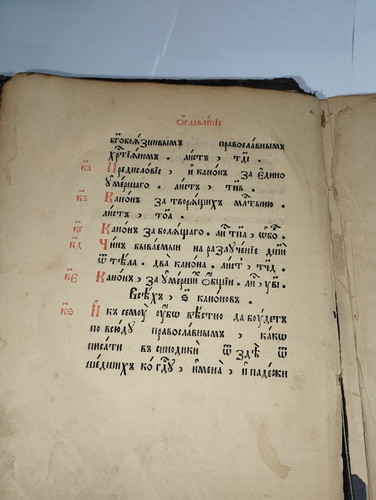 Ѡглавле́нїе
бг҃обоѧ́знивымъ православнымъ
хрⷭ҇тїѧ́ном . ли́стъ , тд҃і .
к҃а Предисло́вїе , и҆ кано́н за є҆ди́но
ᲂу҆ме́ршаго . ли́стъ , ти҃в .
к҃в Кано́н за творѧ́щих ми́лⷭ҇тыню .
ли́стъ , то҃а .
к҃г Кано́н за болѧ́щаго . ли́
к҃д Чи́н быва́емыи на разлꙋче́нїе дш҃и
ѿ тѣ́ла . два̀ кано́на . ли́стъ ,
к҃є Кано́н , за ᲂу҆ме́рших ѻ҆́бщїи . ли́ , ᲂу҆в҃і .
Всѣ́х , ѕ҃ кано́нов .
к҃ѕ И҆ к семꙋ̀ ᲂу҆́бѡ вѣ́стно да бꙋ́детъ
по всю́дꙋ правосла́вным , ка́кѡ
писа́ти въ сино́дики ѿ здѣ̀ ѿ
ше́дших ко гдⷭ҇ꙋ , и҆мена̀ , и҆ паде́жи